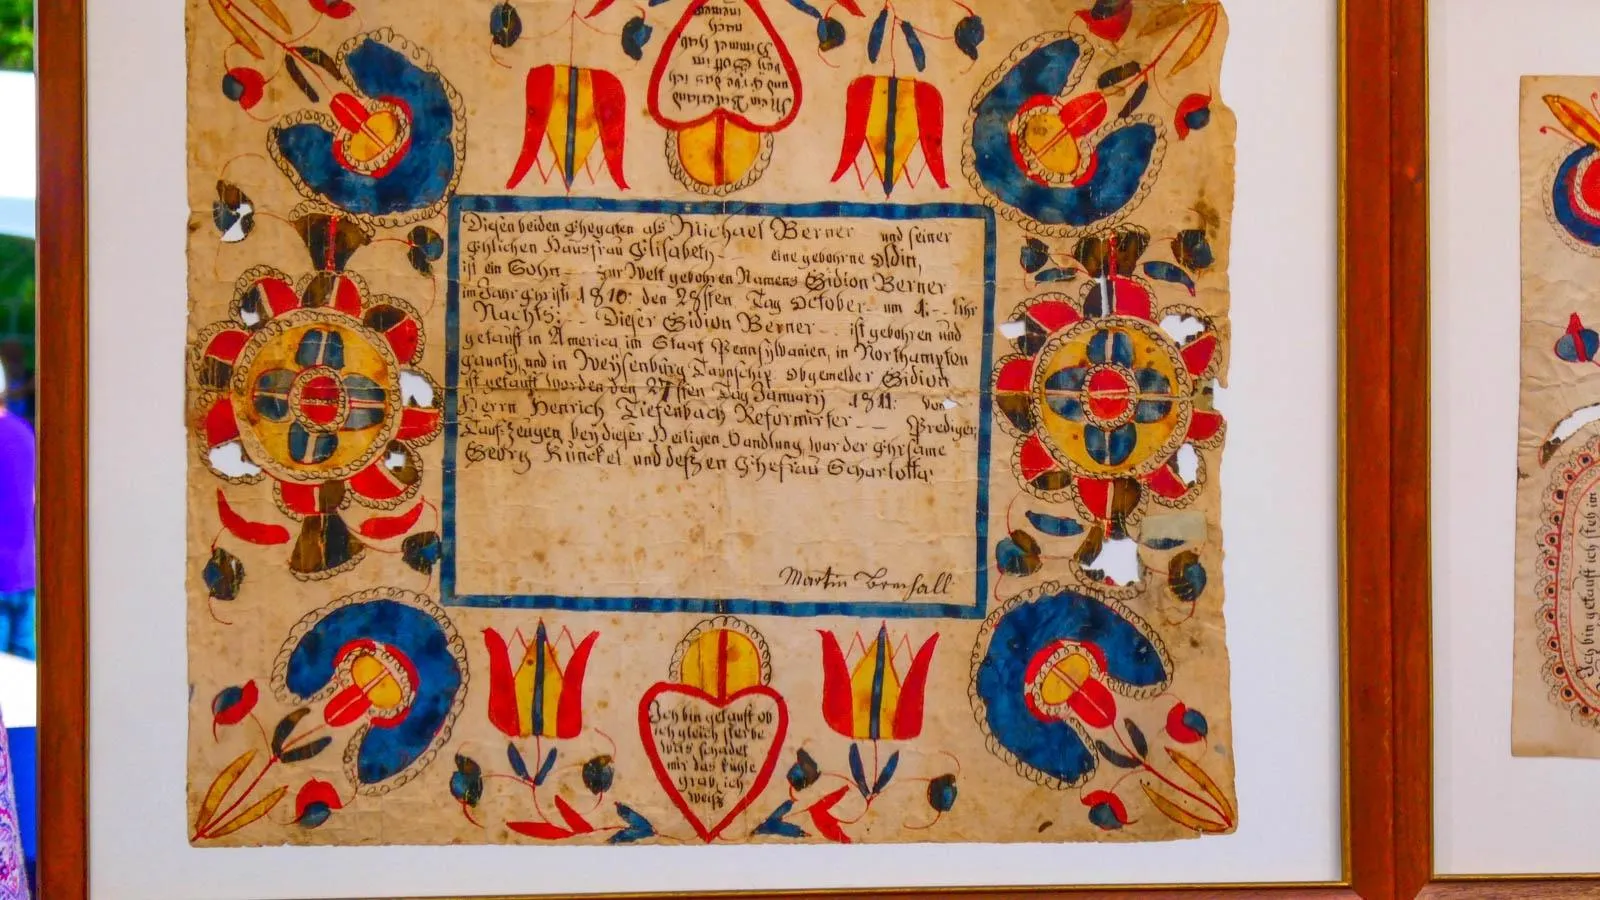 Mein Vaterland
und Erbe das ich
beÿ Gott im
Himmel hab,
nach
Diesen beiden Ehegaten als Michael Berner und seiner
Ehlichen Hausfrau Elisabeth eine gebohrne
ist ein Sohn zur Welt gebohren Namens Gidion Berner
im Jahr Christi 1810: den 28sten Tag October um 1: Uhr
Nachts: Dieser Gidion Berner ist gebohren und
getauft in America im Staat Pennsylvanien, in Northampton
caunty, und in Weÿsenburg Taunschip obgemelder Gidion
ist getauft worden den 27sten Tag Januarÿ 1811: von
Herrn Henrich Tiefenbach Reformirter Prediger,
Tauf-Zeugen beÿ dieser Heiligen Handlung war der Ehrsame
Georg Kunckel und deßen Ehefrau Scharlotta
Martin
Ich bin getauft ob
ich gleich sterbe
was schadet
mir das kühle
grab, ich
weiß
Ich bin getauft ich steh im